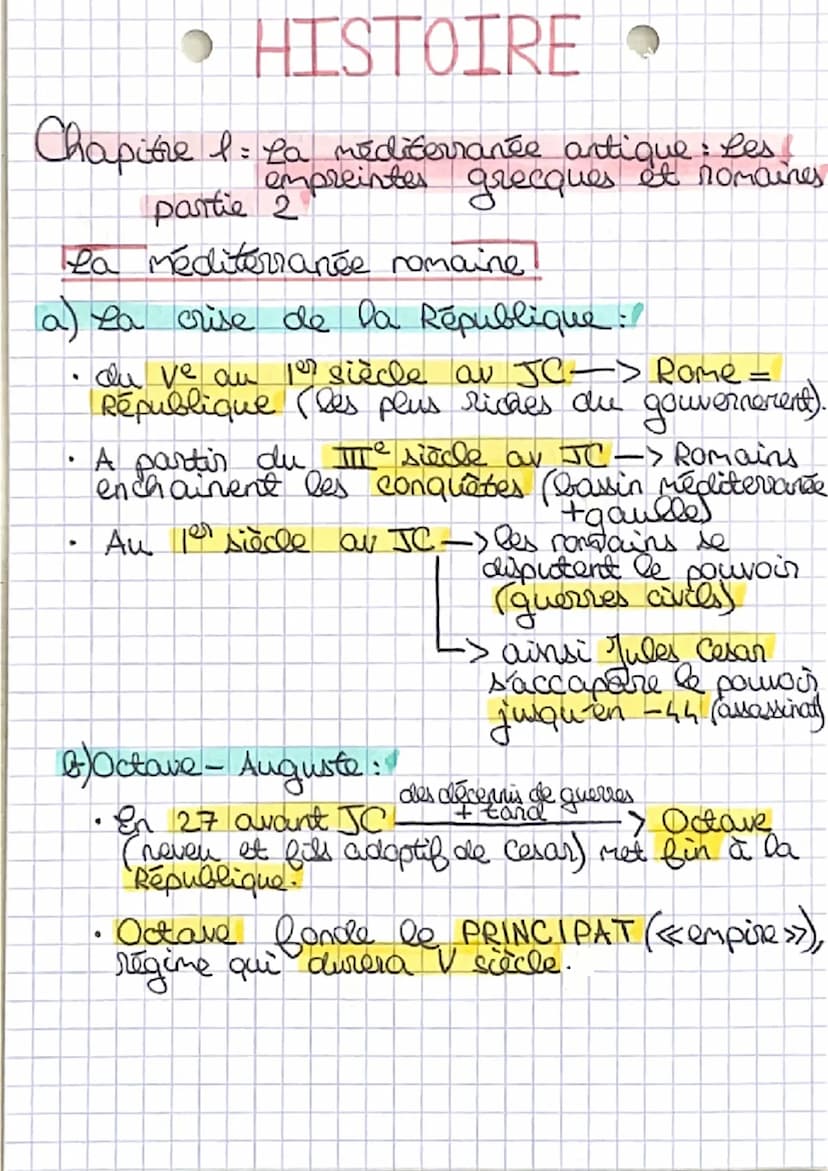 HISTOIRE
Chapitre 1 : La méditerranée antique : Les
empreintes grecques et romaines
partie 2
La méditerranée romaine
a) La crise de la République :
• du Ve au 1er siècle av JC —> Rome =
République (les plus riches du gouvernement).
• A partir du IIIe siècle av JC —> Romains
enchainent les conquêtes (bassin méditerranée
+ gaulle)
• Au 1er siècle av JC —> les romains se
disputent le pouvoir
(guerres civils)
—> ainsi Jules Cesar
s'accapare le pouvoir
jusqu'en -44 (assassinat)
b) Octave - Auguste :
des décennis de guerres
+ tard
• En 27 avant JC —> Octave
(neveu et fils adoptif de Cesar) met fin à la
République.
• Octave fonde le PRINCIPAT (« empire »),
régime qui durera V siècle.